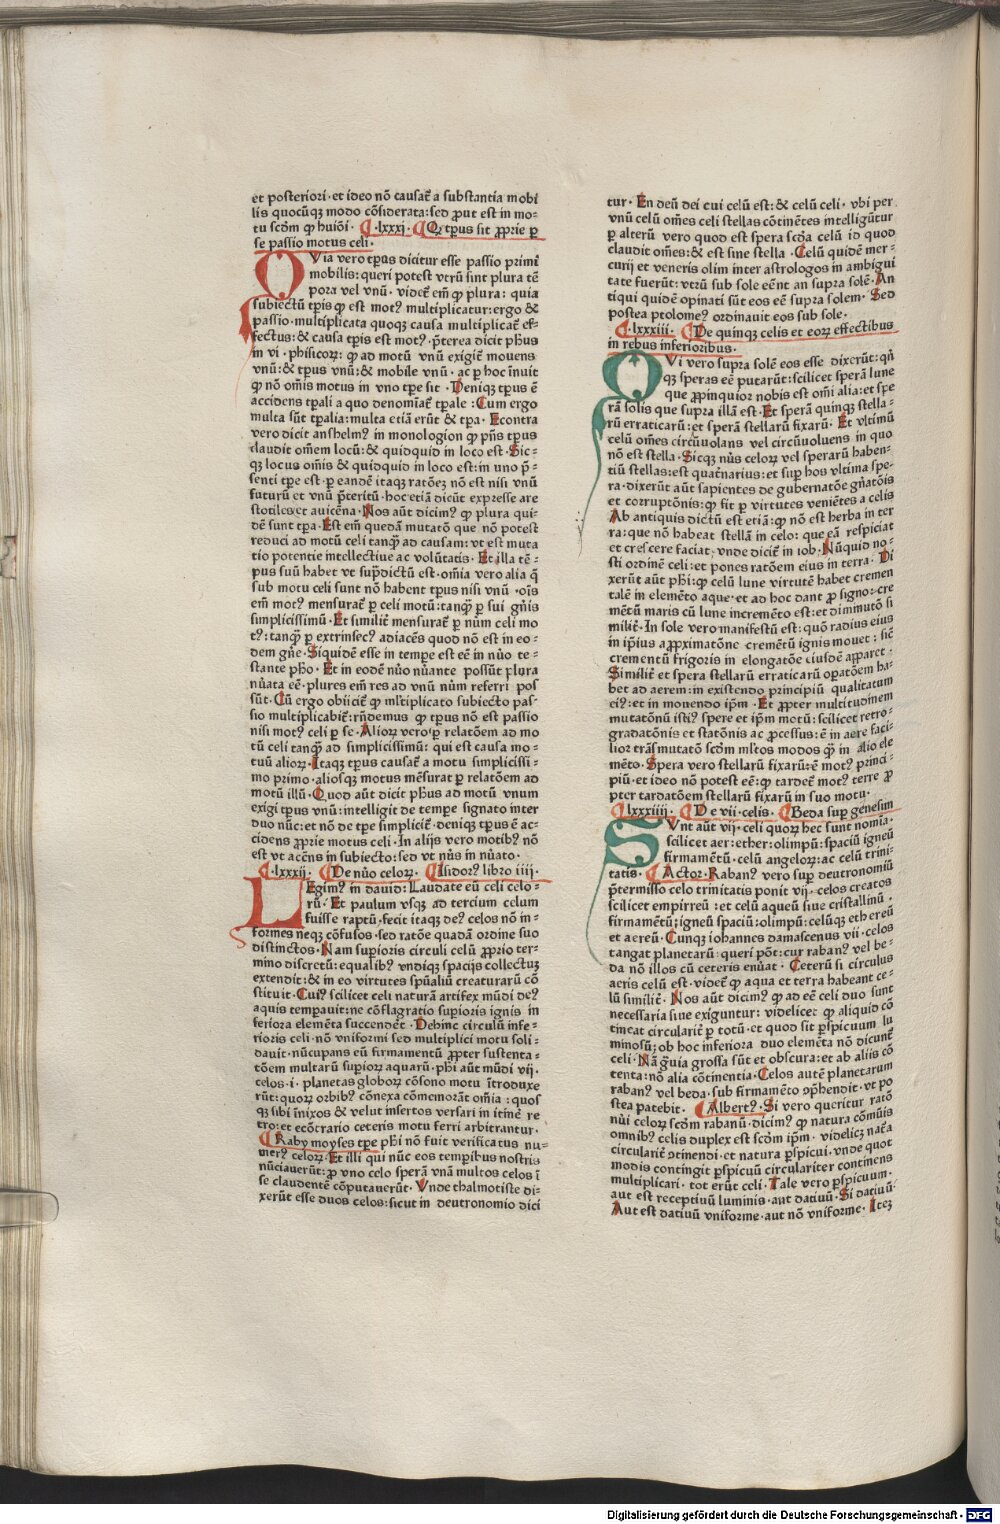 et posteriori · et ideo nō causat̄ a substantia mobi
lis quocūqꝫ modo cōsiderata : sed ꝓut est in mo⸗
tu scd̄m ꝙ huiōi · ¶ ·lxxxi· ¶ Qꝛ tp̄us sit ꝓprie p̲
se passio motus celi ·
QVia vero tp̄us dicitur esse passio primi
mobilis : queri potest vtrū sint plura tē
pora vel vnū · videt̄ em̄ ꝙ plura : quia
subiectū tp̄is ꝙ est motꝰ multiplicatur : ergo &
passio · multiplicata quoqꝫ causa multiplicat̄ ef⸗
fectus : & causa tp̄is est motꝰ · p̄terea dicit ph̄us
in vi · phisicoꝝ : ꝙ ad motū vnū exigit̄ mouens
vnū : & tp̄us vnū : & mobile vnū · ac p̲ hoc īnuit
ꝙ nō om̄is motus in vno tp̄e sit · Deniqꝫ tp̄us ē
accidens tp̄ali a quo denomiat̄ tp̄ale : Cum ergo
multa sūt tp̄alia : multa etiā erūt & tp̄a · Econtra
vero dicit anshelmꝰ in monologion ꝙ pn̄s tp̄us
claudit om̄em locū : & quidquid in loco est · Sic⸗
qꝫ locus om̄is & quidquid in loco est : in uno p̄⸗
senti tp̄e est · p̲ eandē itaqꝫ ratōeꝫ nō est nisi vnū
futurū et vnū p̄teritū · hoc etiā dicūt expresse are
stotiles et auicēna · Nos aūt dicimꝰ ꝙ plura qui⸗
dē sunt tp̄a · Est em̄ quedā mutatō que nō potest
reduci ad motū celi tanqꝫ ad causam : vt est muta
tio potentie intellectiue ac volūtatis · Et illa tē⸗
pus suū habet vt sup̄dictū est · om̄ia vero alia q̄
sub motu celi sunt nō habent tp̄us nisi vnū · oīs
em̄ motꝰ mensurat̄ p̲ celi motū : tanqꝫ p̲ sui gn̄is
simplicissimū · Et similit̄ mensurat̄ p̲ num̄ celi mo
tꝰ : tanqꝫ p̲ extrinsecꝰ adiacēs quod nō est in eo⸗
dem gn̄e · Siquidē esse in tempe est eē in nūo te⸗
stante ph̄o · Et in eodē nūo nūante possūt plura
nūata eē · plures em̄ res ad vnū num̄ referri pos
sūt · Cū ergo obiicit̄ ꝙ ml̄tiplicato subiecto pas⸗
sio multiplicabit̄ : rn̄demus ꝙ tp̄us nō est passio
nisi motꝰ celi p̲ se · Alioꝝ vero p̲ relatōem ad mo
tū celi tanqꝫ ad simplicissimū : qui est causa mo⸗
tuū alioꝝ · Itaqꝫ tp̄us causat̄ a motu simplicissi⸗
mo primo · aliosqꝫ motus mēsurat p̲ relatōem ad
motū illū · Quod aūt dicit ph̄us ad motū vnum
exigi tp̄us vnū : intelligit de tempe signato inter
duo nūc : et nō de tp̄e simplicit̄ · deniqꝫ tp̄us ē ac⸗
cidens ꝓprie motus celi · In alijs vero motibꝰ nō
est vt accn̄s in subiecto : sed vt nūs in nūato ·
¶ ·lxxxij· ¶ De nūo celoꝝ · ¶ Isidorꝰ libro iiij·
LEgimꝰ in dauid : Laudate eū celi celo⸗
rū · Et paulum vsqꝫ ad tercium celum
fuisse raptū · fecit itaqꝫ deꝰ celos nō in⸗
formes neqꝫ cōfusos · sed ratōe quadā ordine suo
distinctos · Nam sup̲ioris circuli celū ꝓprio ter⸗
mino discretū : equalibꝰ vndiqꝫ spacijs collectuꝫ
extendit : & in eo virtutes sp̄ualiū creaturarū cō
stituit · Cuiꝰ scilicet celi naturā artifex mūdi deꝰ
aquis temp̲auit : ne cōflagratio sup̲ioris ignis in
feriora elemēta succendet̄ · Dehinc circulū infe⸗
rioris celi nō vniformi sed multiplici motu soli⸗
dauit · nūcupans eū firmamentū ꝓpter sustenta⸗
tōem multarū sup̲ioꝝ aquarū · phi aūt mūdi vij ·
celos · i · planetas globoꝝ cōsono motu ītroduxe
rūt : quoꝝ orbibꝰ cōnexa cōmemorāt om̄ia : quos
qꝫ sibi īnixos & velut insertos versari in itin̄e re
tro : et ecōtrario ceteris motu ferri arbitrantur ·
¶ Raby moyses tp̄e phi nō fuit verificatus nu⸗
merꝰ celoꝝ · Et illi qui nūc eos temp̲ibus nostris
nūciauerūt : ꝓ vno celo sperā vnā multos celos ī
se claudentē cōputauerūt · Vnde thalmotiste di⸗
xerūt esse duos celos : sicut in deutronomio dici
tur · En deū dei tui celū est : & celū celi · vbi per
vnū celū om̄es celi stellas cōtinētes intelligūtur
p̲ alterū vero quod est spera scd̄a celū id quod
claudit om̄es : & est sine stella · Celū quidē mer⸗
curij et veneris olim inter astrologos in ambigui
tate fuerūt : vtrū sub sole eēnt an supra solē · An
tiqui quidē opinati sūt eos eē supra solem · Sed
postea ptolomeꝰ ordinauit eos sub sole ·
¶ ·lxxxiii· ¶ De quinqꝫ celis et eoꝝ effectibus
in rebus inferioribus ·
QVi vero supra solē eos esse dixerūt : qn̄
qꝫ speras eē putarūt : scilicet sperā lune
que ꝓpinquior nobis est om̄i alia : et spe
rā solis que supra illā est · Et sperā quinqꝫ stella⸗
rū erraticarū : et sperā stellarū fixarū · Et vltimū
celū om̄es circūuolans vel circūuoluens in quo
nō est stella · Sicqꝫ nūs celoꝝ vel sperarū haben⸗
tiū stellas : est quat̄narius : et sup̲ hos vltima spe⸗
ra · dixerūt aūt sapientes de gubernatōe gn̄atōis
et corruptōnis : ꝙ fit p̲ virtutes veniētes a celis
Ab antiquis dictū est etiā : ꝙ nō est herba in ter
ra : que nō habeat stellā in celo : que eā respiciat
et crescere faciat · vnde dicit̄ in iob · Nūquid no⸗
sti ordinē celi : et pones ratōem eius in terra · Di
xerūt aūt phi : ꝙ celū lune virtutē habet cremen
talē in elemēto aque · et ad hoc dant ꝓ signo · cre
mētū maris cū lune incremēto est : et diminutō si
milit̄ · In sole vero manifestū est : quō radius eius
in ip̄ius aꝓximatōne cremētū ignis mouet : sic̄
crementū frigoris in elongatōe eiusdē apparet ·
Similit̄ et spera stellarū erraticarū op̲atōem ha⸗
bet ad aerem : in existendo principiū qualitatum
eiꝰ : et in mouendo ip̄m · Et ꝓpter multitudinem
mutatōnū istiꝰ spere et ip̄m motū : scilicet retro⸗
gradatōnis et statōnis ac ꝓcessus : ē in aere faci⸗
lior trāsmutatō scd̄m ml̄tos modos qꝫ in alio ele
mēto · Spera vero stellarū fixarū : ē motꝰ princi⸗
piū · et ideo nō potest eē : ꝙ tardet̄ motꝰ terre ꝓ
pter tardatōem stellarū fixarū in suo motu ·
¶ ·lxxxiiij· ¶ De vii · celis · ¶ Beda sup̲ genesim
SVnt aūt vij · celi quoꝝ hec sunt nomīa ·
scilicet aer : ether : olimpū : spaciū igneū
firmamētū · celū angeloꝝ : ac celū trini⸗
tatis · ¶ Actor · Rabanꝰ vero sup̲ deutronomiū
p̄termisso celo trinitatis ponit vij · celos creatos
scilicet empirreū : et celū aqueū siue cristallinū ·
firmamētū : igneū spaciū : olimpū : celūqꝫ ethereū
et aereū · Cunqꝫ iohannes damascenus vii · celos
tangat planetarū : queri pōt : cur rabanꝰ vel be⸗
da nō illos cū ceteris enūat · Ceterū si circulus
aeris celū est · videt̄ ꝙ aqua et terra habeant ce⸗
lū similit̄ · Nos aūt dicimꝰ ꝙ ad eē celi duo sunt
necessaria siue exiguntur : videlicet ꝙ aliquid cō
tineat circularit̄ p̲ totū : et quod sit p̲spicuum lu
minosū ; ob hoc inferiora duo elemēta nō dicunt̄
celi · Nā grauia grossa sūt et obscura : et ab aliis cō
tenta : nō alia cōtinentia · Celos autē planetarum
rabanꝰ vel beda · sub firmamēto ꝯp̄hendit · vt po
stea patebit · ¶ Albertꝰ · Si vero queritur ratō
nūi celoꝝ scd̄m rabanū · dicimꝰ ꝙ natura cōmūis
omnibꝰ celis duplex est scd̄m ip̄m · videlicꝫ nat̄a
circularit̄ ꝯtinendi · et natura p̲spicui · vnde quot
modis contingit p̲spicuū circulariter continens
multiplicari · tot erūt celi · Tale vero p̲spicuum ·
aut est receptiuū luminis · aut datiuū · Si datiuū ·
Aut est datiuū vniforme · aut nō vniforme · Iteꝫ
Digitalisierung gefördert durch die Deutsche Forschungsgemeinschaft - DFG